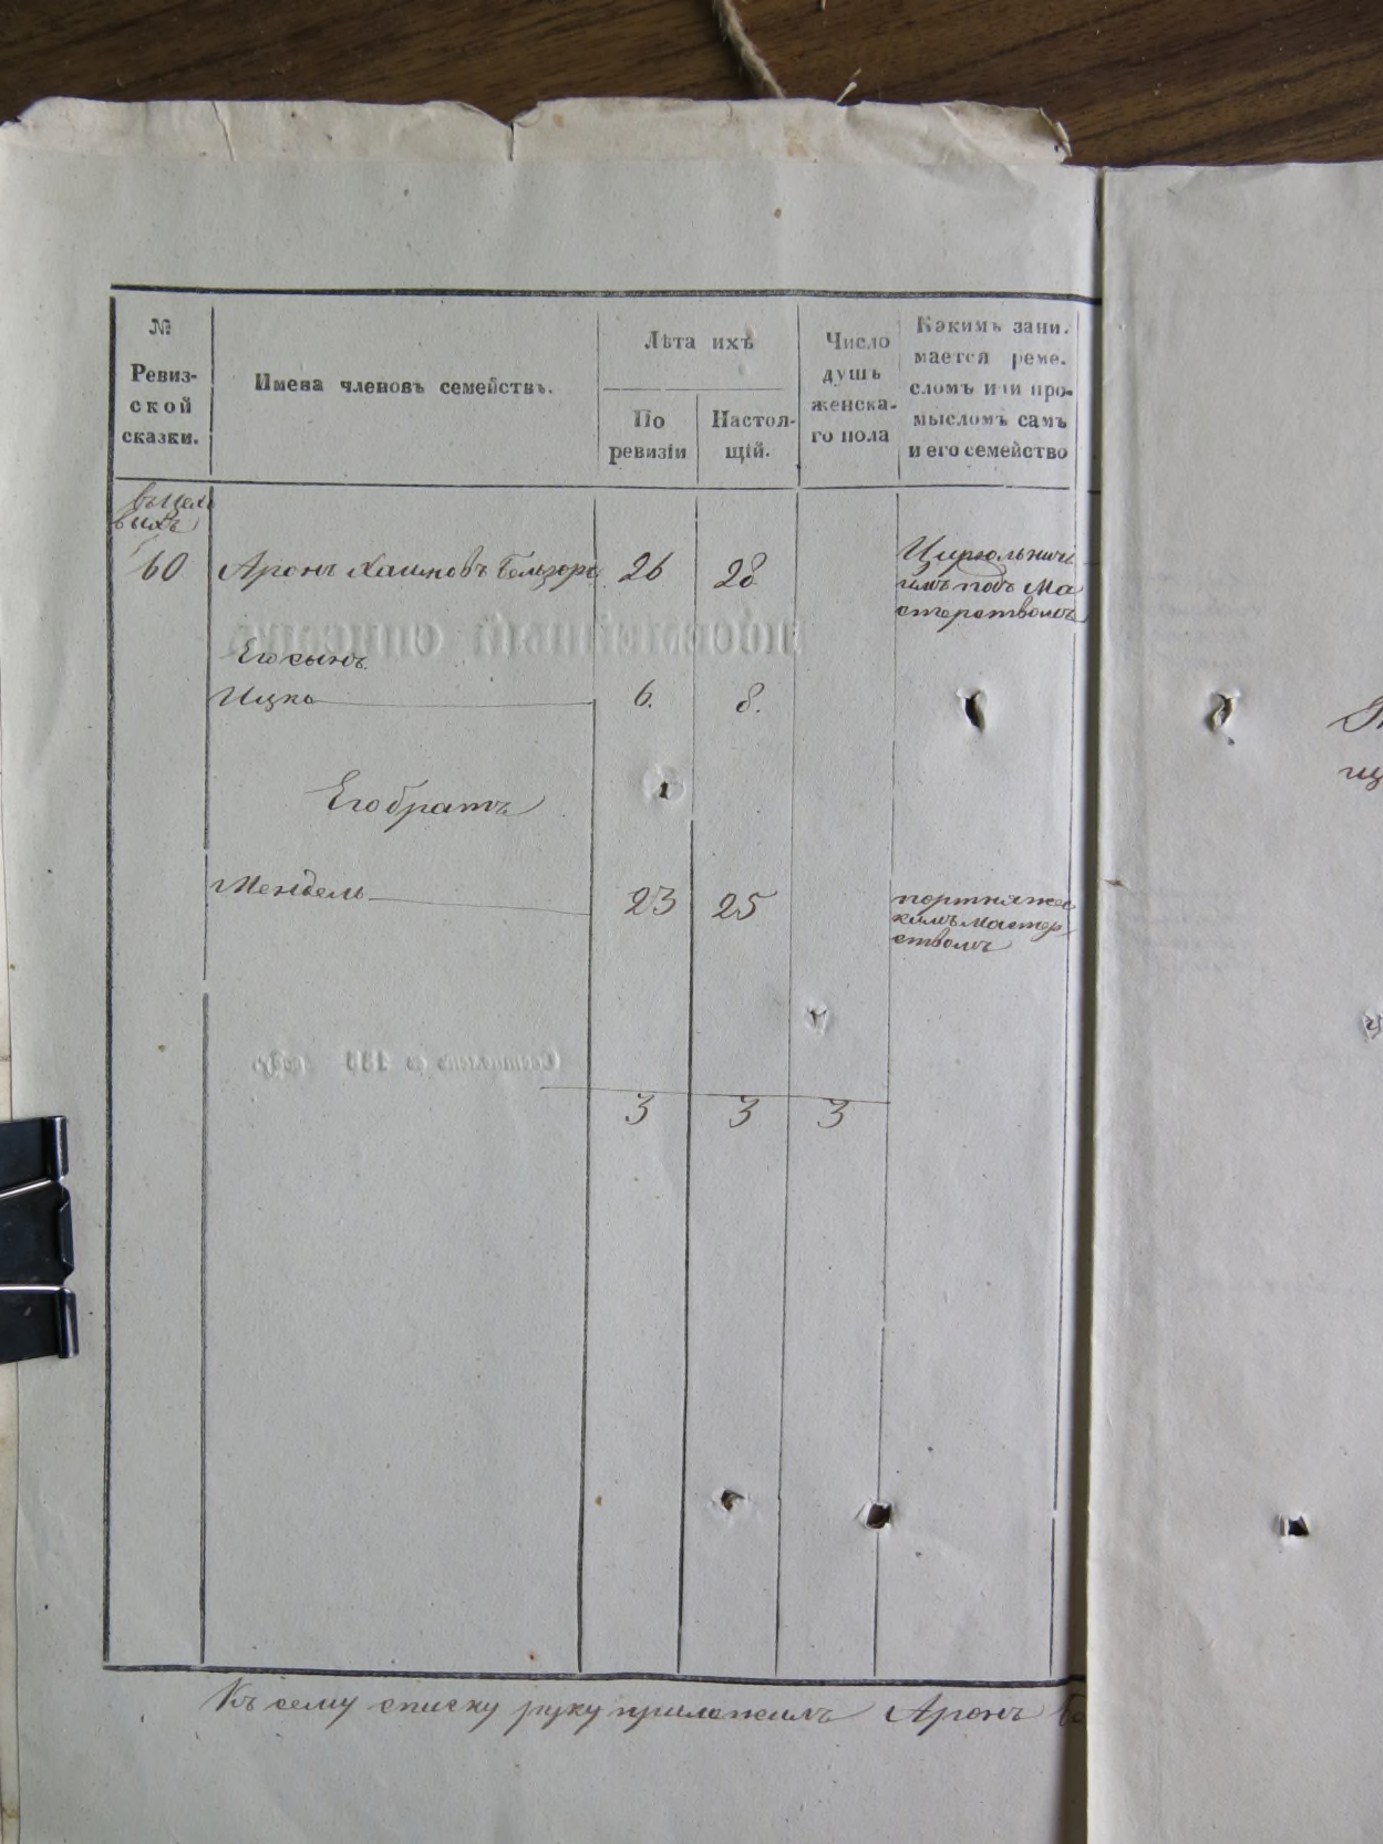 № Ревиз-ской сказки.
Имена членовъ семействъ.
Лѣта ихъ
По ревизіи
Настоя-щій.
Число душъ женска-го пола
Какимъ зани-мается реме-сломъ или про-мысломъ самъ и его семейство
60 Аронъ Хаимовъ 26 28
Цирюльничь
имъ подъ Ма
стерствомъ
Его сынъ
Ицко 6. 8.
Его братъ
Мендель 23 25
портняжес
кимъ мастер-
ствомъ
3 3 3
Къ сему списку руку приложилъ Аронъ